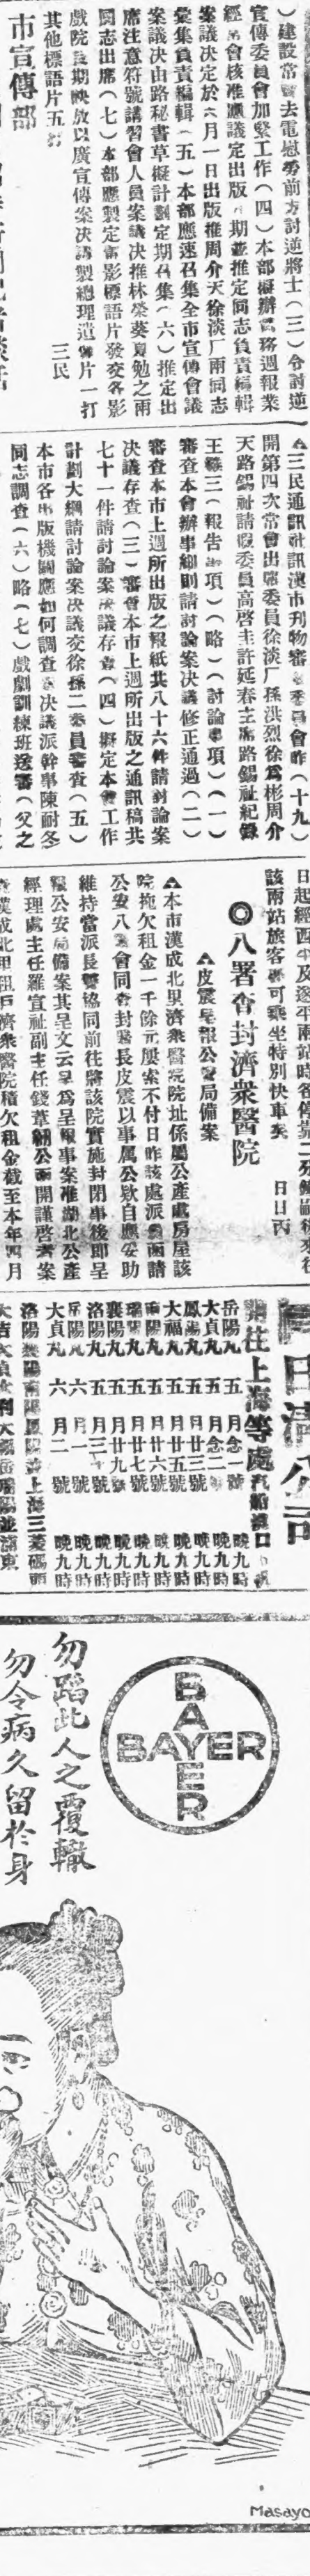 )建設常會去電慰勞前方討逆將士(三)令討逆
宣傳委員會加緊工作(四)本部擬辦黨務週報業
經常會核准議定出版日期並推定同志負責編輯
案議決定於六月一日出版推周介天徐淡厂兩同志
彙集負責編輯(五)本部應速召集全市宣傳會議
案議決由路秘書草擬計劃定期召集(六)推定出
席注意符號講習會人員案議決推林榮葵夏勉之兩
同志出席(七)本部應製定電影標語片發交各影
戲院長期映放以廣宣傳案決議製總理遺像片一打
其他標語片五打
三民
市宣傳部
▲三民通訊社訊漢市刊物審查委員會昨(十九)
開第四次常會出席委員徐淡厂孫洪烈徐爲彬周介
天路錫祉請假委員高啓圭許延春主席路錫祉紀錄
王繇三(報告事項)(略)(討論事項)(一)
審查本會辦事細則請討論案決議修正通過(二)
審查本市上週所出版之報紙共八十六件請討論案
決議存查(三)審查本市上週所出版之通訊稿共
七十一件請討論案決議存查(四)擬定本會工作
計劃大綱請討論案決議交徐孫二委員審查(五)
本市各出版機關應如何調查案決議派幹事陳耐冬
同志調查(六)略(七)戲劇訓練班送審(父之
日起經西平及遂平兩站時各停靠二分鐘
該兩站旅客 可乘坐特別快車矣 日日丙
◎八署查封濟衆醫院
▲皮震呈報公安局備案
▲本市漢成北里濟衆醫院院址係屬公產處房屋該
院拖欠租金一千餘元屢案不付日昨該處派員函請
公安八署會同查封署長皮震以事屬公欵自應妥助
維持當派長警協同前往將該院實施封閉事後即呈
報公安局備案其呈文云呈爲呈報事案准湖北公產
經理處主任羅宣祉副主任錢葦 公函開謹啓者案
查漢成北里租戶濟衆醫院積欠租金截至本年四月
日清公司
開往上海等處
岳陽丸 五月念一號 晚九時
大貞丸 五月念二號 晚九時
鳳陽丸 五月廿三號 晚九時
大福丸 五月廿五號 晚九時
南陽丸 五月廿六號 晚九時
瑞陽丸 五月廿七號 晚九時
襄陽丸 五月廿九號 晚九時
洛陽丸 五月三十號 晚九時
岳陽丸 六月一號 晚九時
大貞丸 六月二號 晚九時
BAYER
BAYER
勿蹈此人之覆轍
勿令病久留於身
Masayo